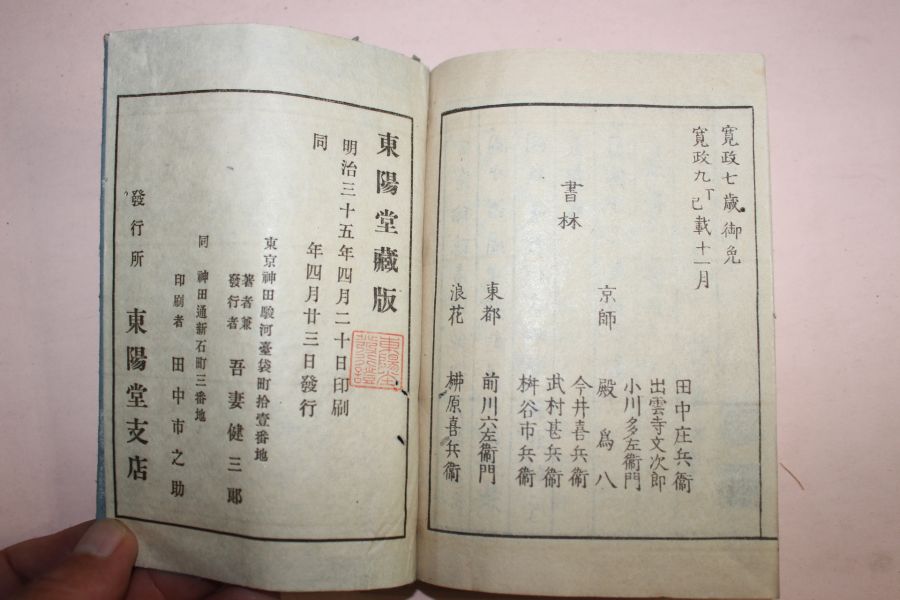 寛政七歳御免
寛政九丁巳載十一月
書林
京師
田中庄兵衞
出雲寺文次郎
小川多左衞門
殿爲八
今井喜兵衞
武村甚兵衞
桝谷市兵衞
東都
前川六左衞門
浪花
柳原喜兵衞
東陽堂藏版
明治三十五年四月二十日印刷
同年四月廿三日發行
東京神田駿河臺袋町拾壹番地
著者兼
發行者
吾妻健三郎
同神田通新石町三番地
印刷者田中市之助
發行所東陽堂支店